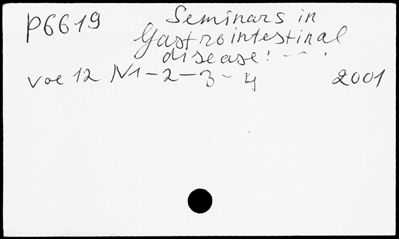 P6619 Seminars in
Gastrointestinal
disease! — .
Voe 12 N1-2-3-4 2001